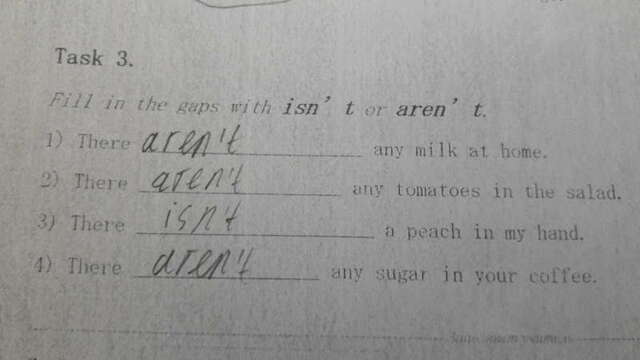 Task 3.
Fill in the gaps with isn't or aren't.
1) There aren't any milk at home.
2) There aren't any tomatoes in the salad.
3) There isn't a peach in my hand.
4) There aren't any sugar in your coffee.